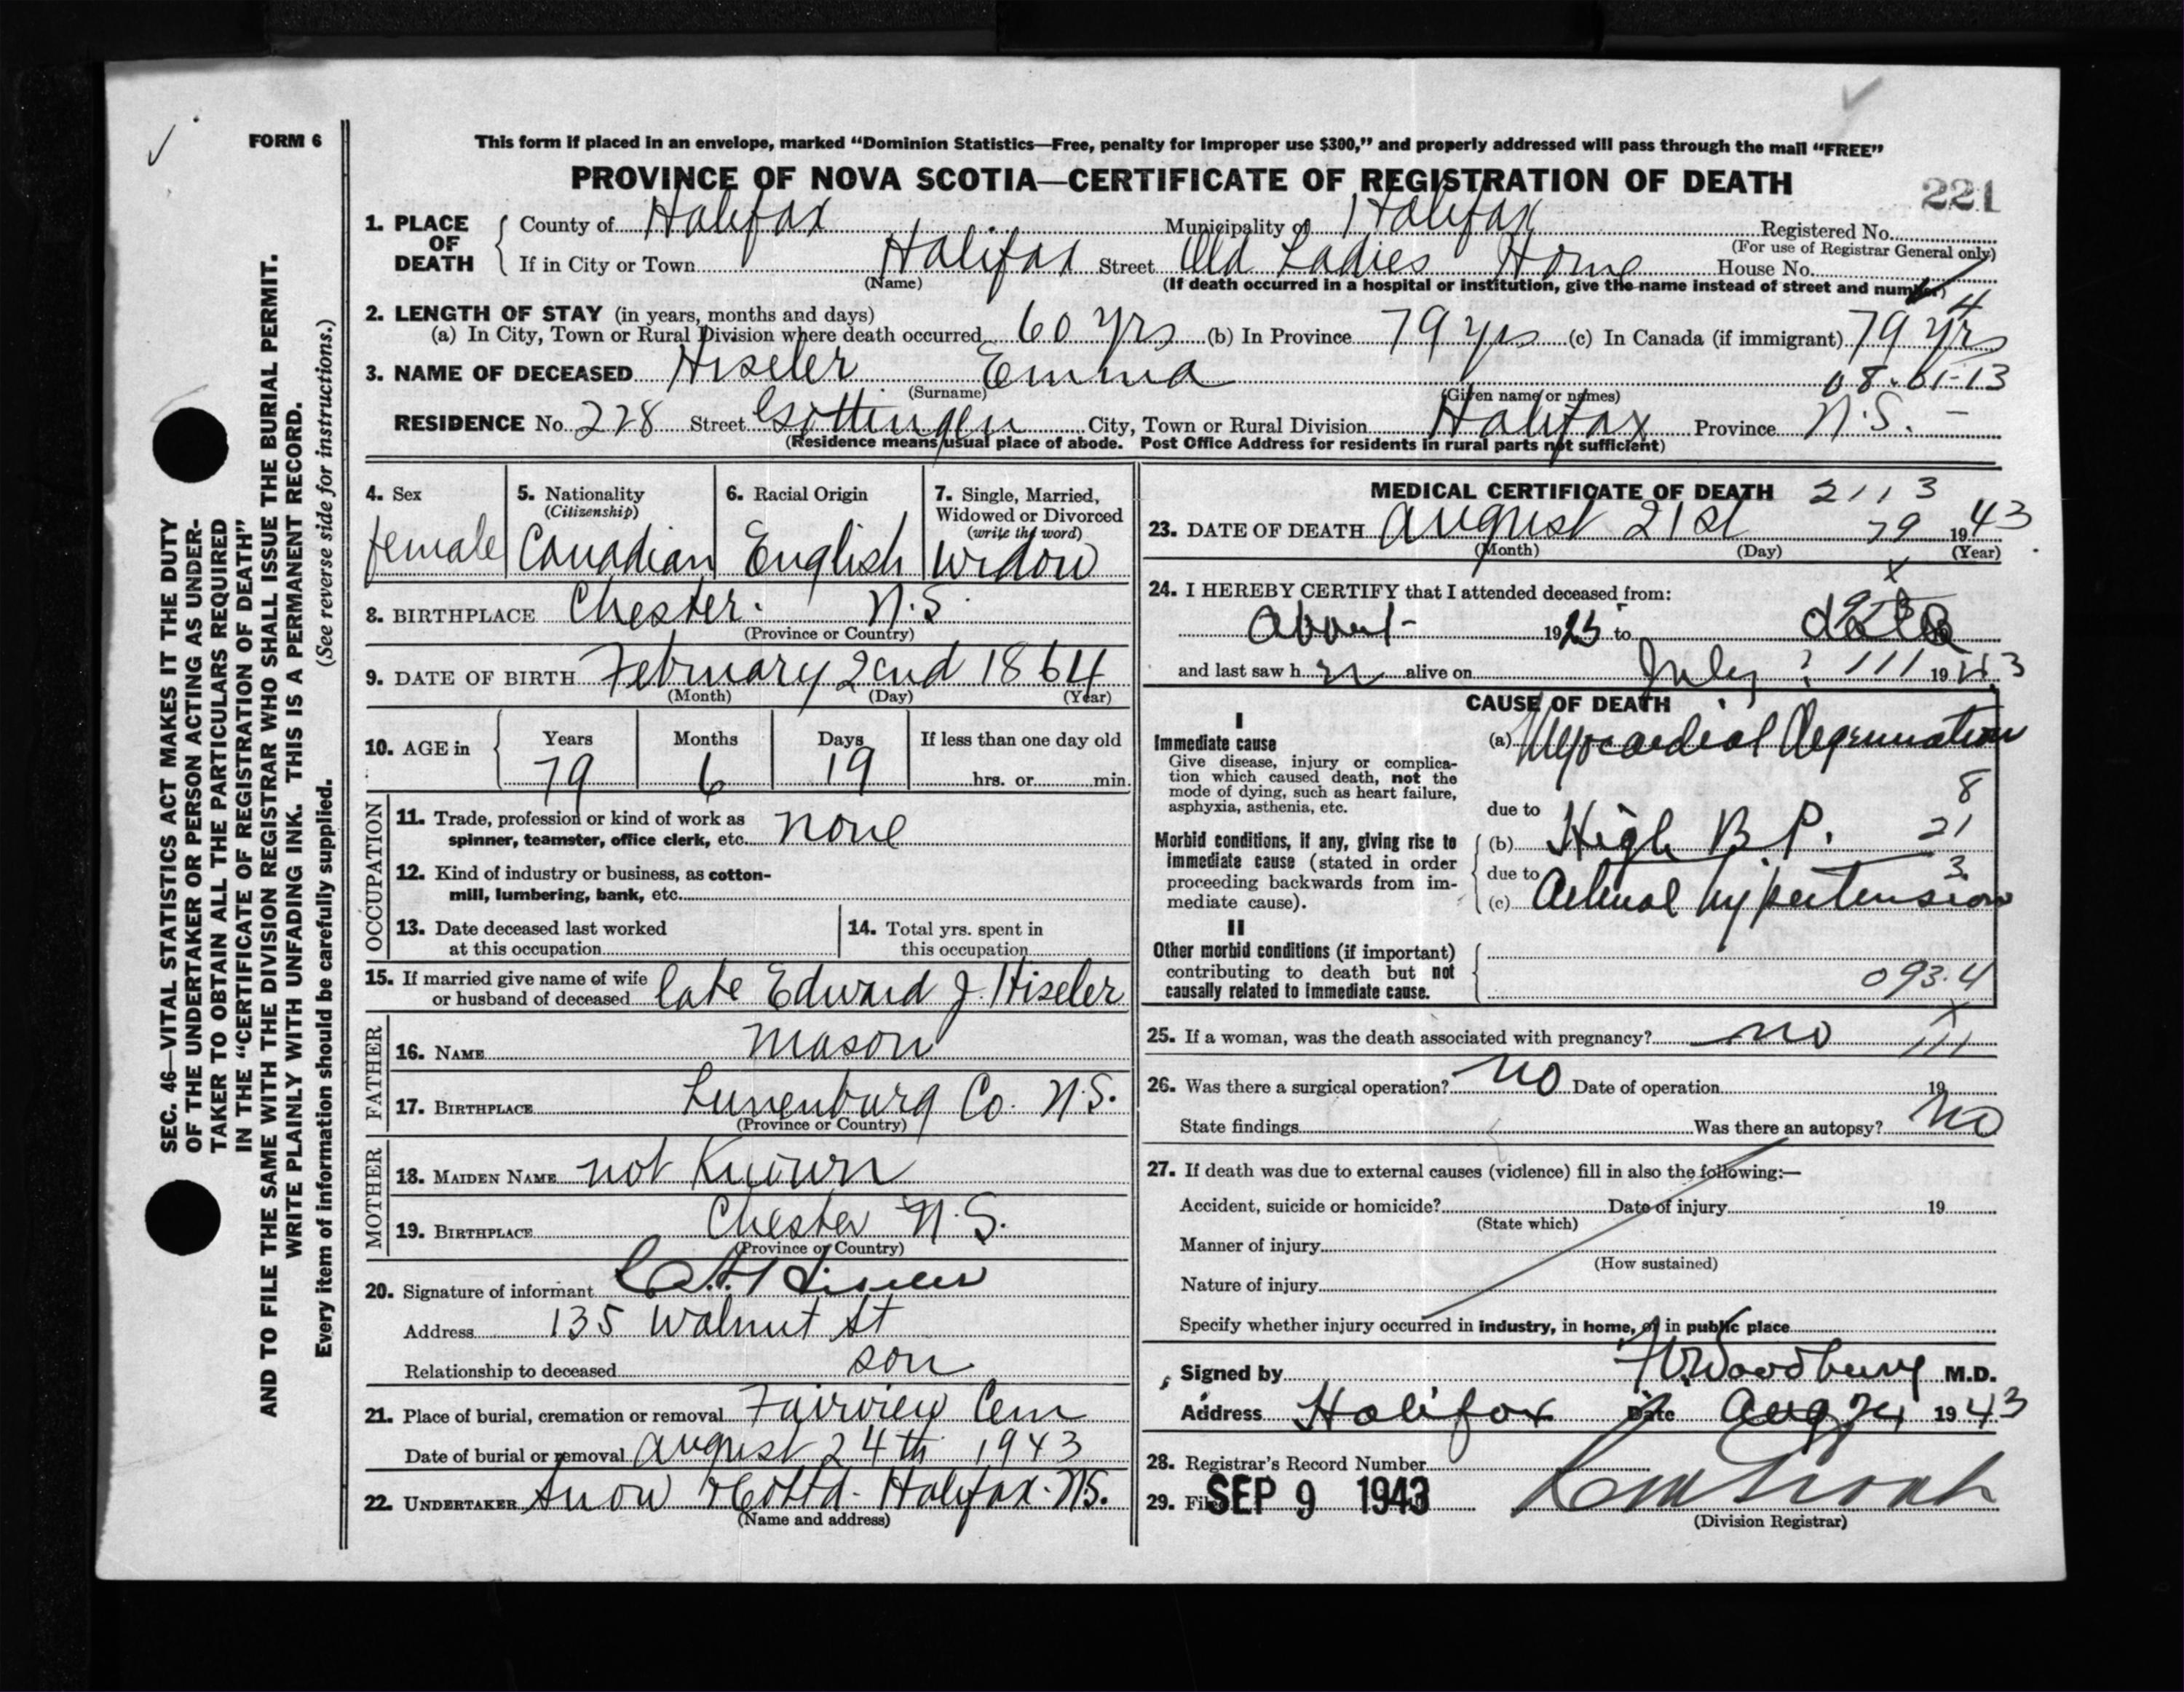 FORM 6
This form if placed in an envelope, marked “Dominion Statistics—Free, penalty for improper use $300,” and properly addressed will pass through the mail “FREE”
PROVINCE OF NOVA SCOTIA—CERTIFICATE OF REGISTRATION OF DEATH
221
1. PLACE OF DEATH
County of Halifax Municipality of Halifax Registered No.
(For use of Registrar General only)
If in City or Town Halifax Street Old Ladies Home House No.
(Name) (If death occurred in a hospital or institution, give the name instead of street and number)
4
2. LENGTH OF STAY (in years, months and days)
(a) In City, Town or Rural Division where death occurred 60 yrs (b) In Province 79 yrs (c) In Canada (if immigrant) 79 yrs
3. NAME OF DECEASED Hiseler Emma 08-01-13
(Surname) (Given name or names)
RESIDENCE No. 228 Street Gottingen City, Town or Rural Division Halifax Province N.S. –
(Residence means usual place of abode. Post Office Address for residents in rural parts not sufficient)
4. Sex
female
5. Nationality
(Citizenship)
Canadian
6. Racial Origin
English
7. Single, Married,
Widowed or Divorced
(write the word)
Widow
8. BIRTHPLACE Chester. N.S.
(Province or Country)
9. DATE OF BIRTH February 2cnd 1864
(Month) (Day) (Year)
10. AGE in
Years Months Days If less than one day old
79 6 19 hrs. or min.
OCCUPATION
11. Trade, profession or kind of work as
spinner, teamster, office clerk, etc. none
12. Kind of industry or business, as cotton-
mill, lumbering, bank, etc.
13. Date deceased last worked
at this occupation
14. Total yrs. spent in
this occupation
15. If married give name of wife
or husband of deceased late Edward J. Hiseler
FATHER
16. NAME Mason
17. BIRTHPLACE Lunenburg Co. N.S.
(Province or Country)
MOTHER
18. MAIDEN NAME not Known
19. BIRTHPLACE Chester N.S.
(Province or Country)
20. Signature of informant
Address 135 Walnut St
Relationship to deceased son
21. Place of burial, cremation or removal Fairview Cem
Date of burial or removal August 24th 1943
22. UNDERTAKER Snow & Co Ltd. Halifax. N.S.
(Name and address)
MEDICAL CERTIFICATE OF DEATH 2113
23. DATE OF DEATH August 21st 79 1943
(Month) (Day) (Year)
x
24. I HEREBY CERTIFY that I attended deceased from:
About 1925 to date
and last saw h er alive on July ? 111 1943
CAUSE OF DEATH
I
Immediate cause
Give disease, injury or complica-
tion which caused death, not the
mode of dying, such as heart failure,
asphyxia, asthenia, etc.
(a) Myocardial Degeneration
8
due to
Morbid conditions, if any, giving rise to
immediate cause (stated in order
proceeding backwards from im-
mediate cause).
(b) High B.P. 21
due to 3
(c) Arterial hypertension
II
Other morbid conditions (if important)
contributing to death but not
causally related to immediate cause.
093.4
x
25. If a woman, was the death associated with pregnancy? no 111
26. Was there a surgical operation? no Date of operation 19
State findings Was there an autopsy? No
27. If death was due to external causes (violence) fill in also the following:—
Accident, suicide or homicide? Date of injury 19
(State which)
Manner of injury
(How sustained)
Nature of injury
Specify whether injury occurred in industry, in home, or in public place
Signed by Woodbury M.D.
Address Halifax Date Aug 24 1943
28. Registrar's Record Number
29. Filed SEP 9 1943
(Division Registrar)
SEC. 46—VITAL STATISTICS ACT MAKES IT THE DUTY
OF THE UNDERTAKER OR PERSON ACTING AS UNDER-
TAKER TO OBTAIN ALL THE PARTICULARS REQUIRED
IN THE “CERTIFICATE OF REGISTRATION OF DEATH”
AND TO FILE THE SAME WITH THE DIVISION REGISTRAR WHO SHALL ISSUE THE BURIAL PERMIT.
WRITE PLAINLY WITH UNFADING INK. THIS IS A PERMANENT RECORD.
Every item of information should be carefully supplied. (See reverse side for instructions.)